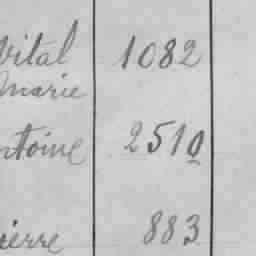 Vital 1082
Marie
ntoine 2510
ierre 883